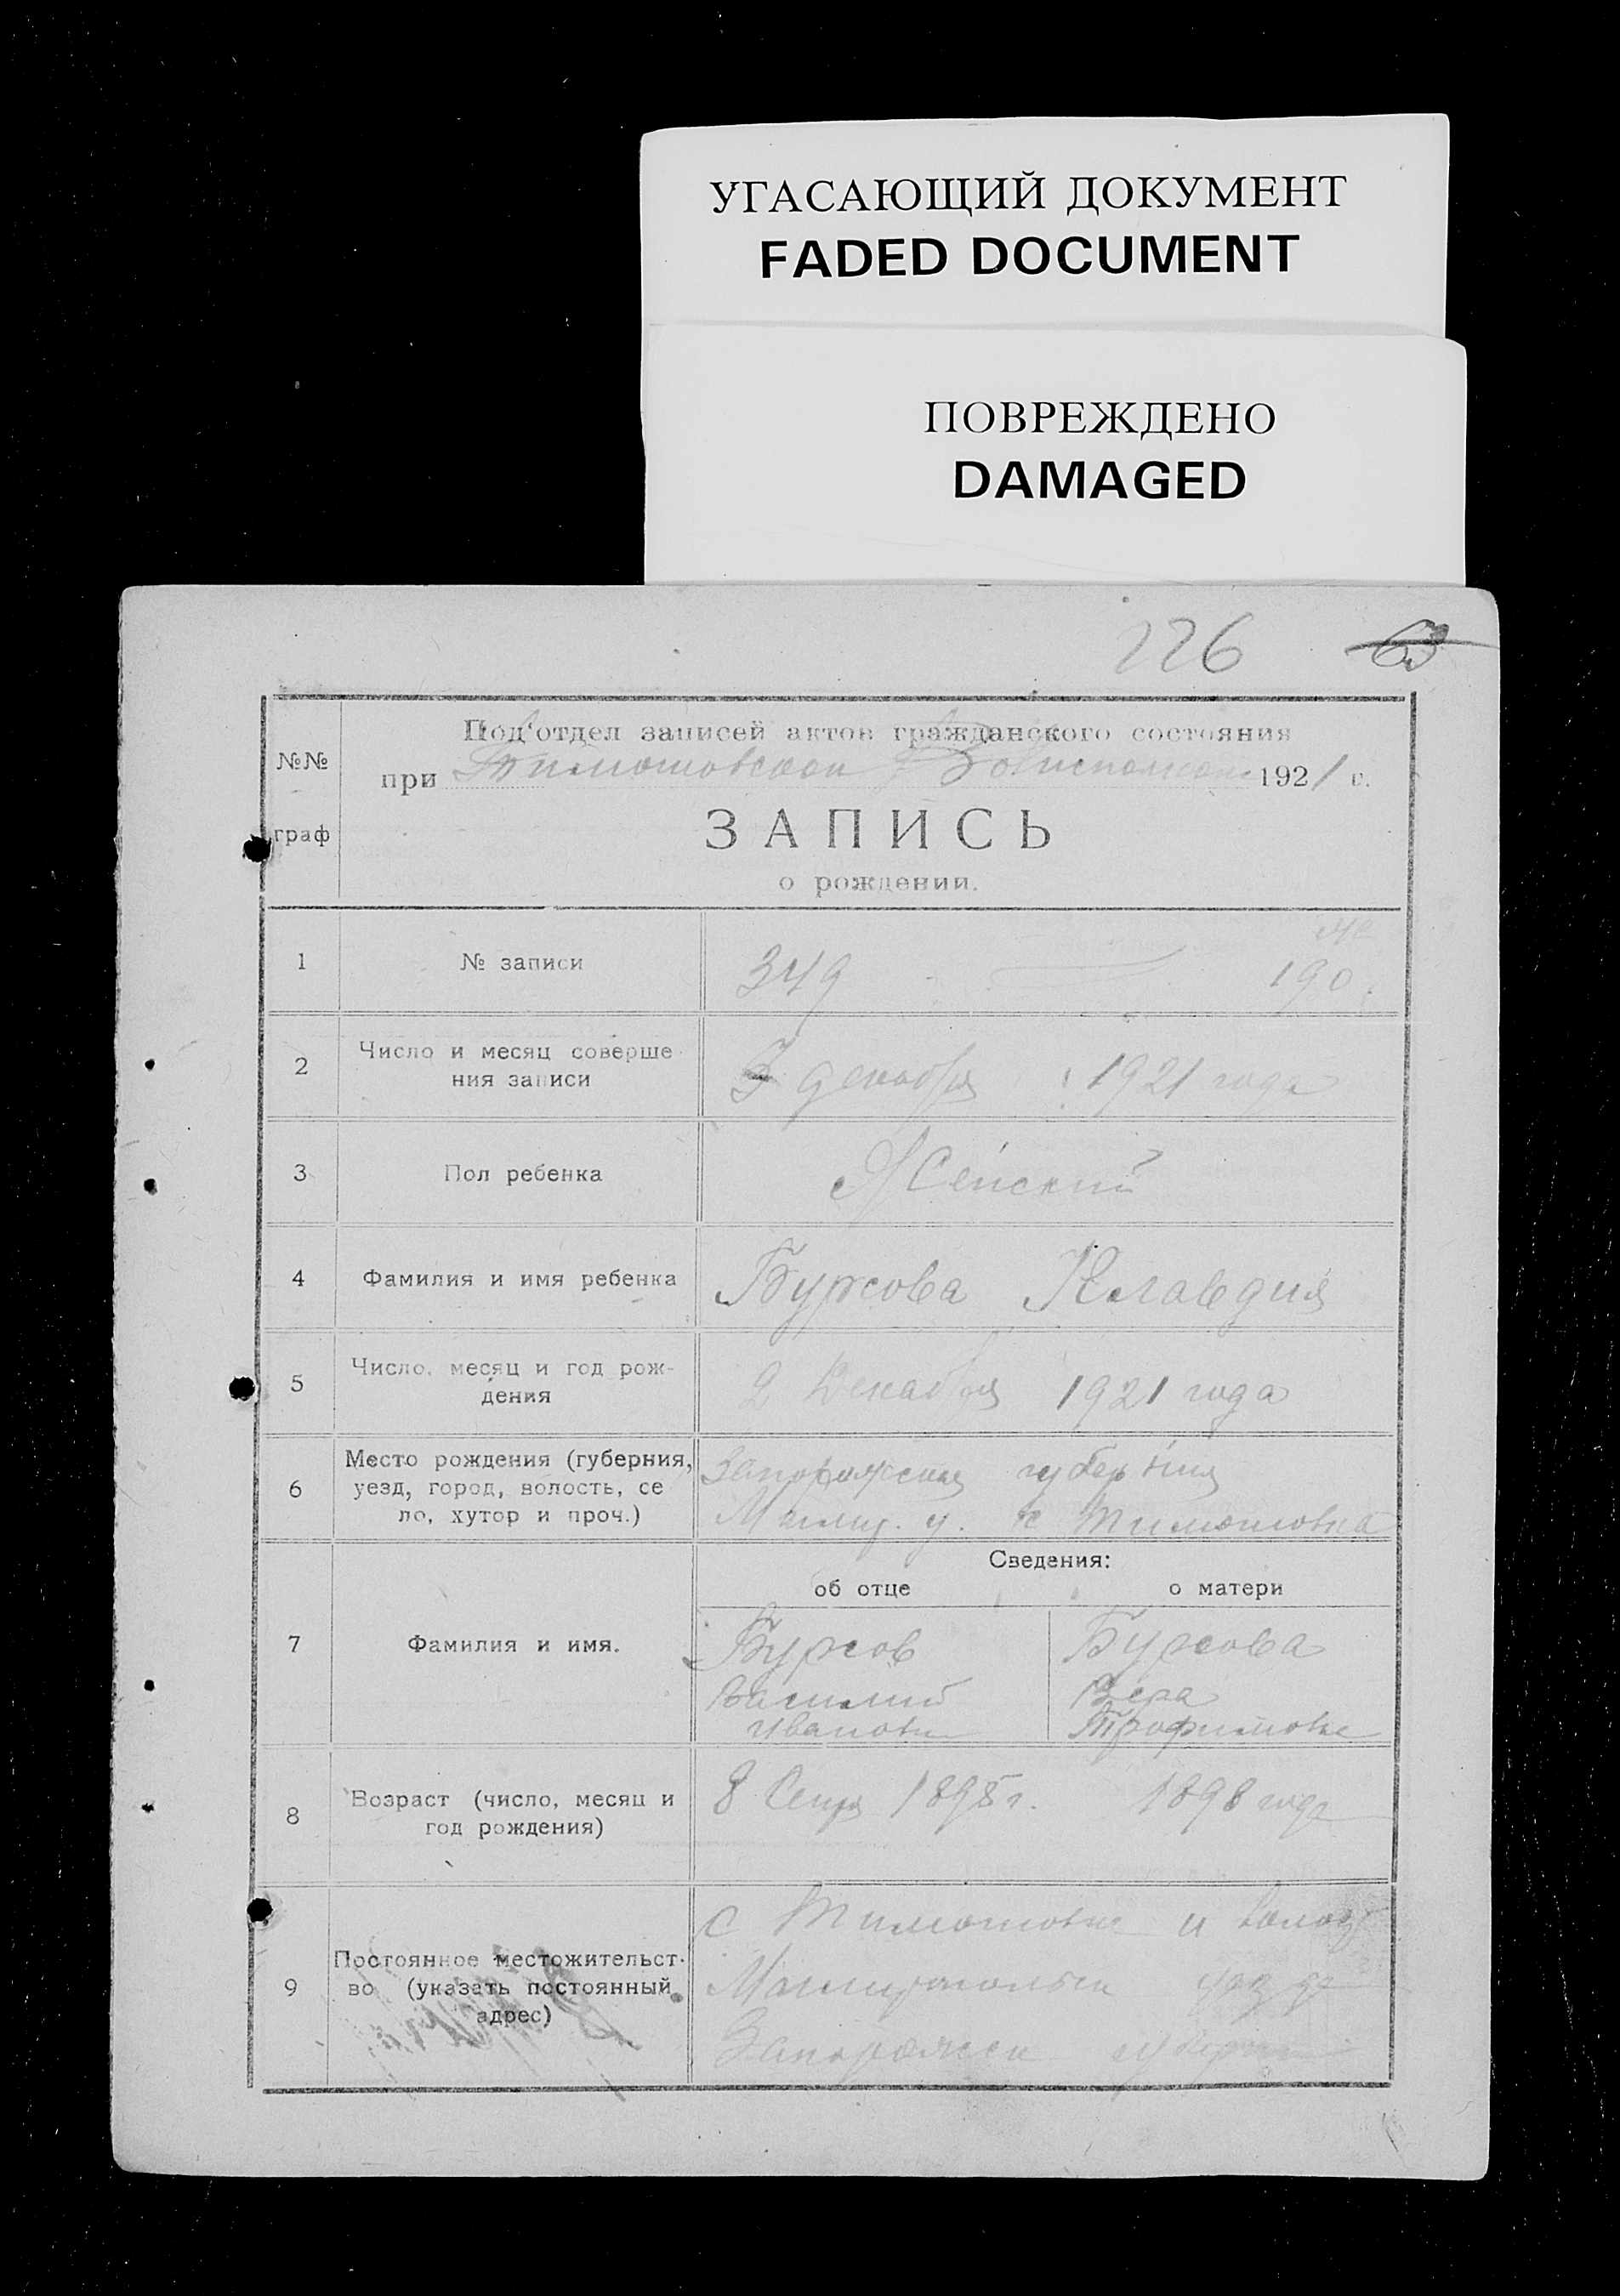 УГАСАЮЩИЙ ДОКУМЕНТ
FADED DOCUMENT
ПОВРЕЖДЕНО
DAMAGED
226 63
№№ граф
Под'отдел записей актов гражданского состояния
при Тимошовской Волисполкоме 1921 г.
ЗАПИСЬ
о рождении.
1 № записи 349 190.
2 Число и месяц соверше
ния записи декабря 1921 года
3 Пол ребенка Женский
4 Фамилия и имя ребенка Бурсова Клавдия
5 Число, месяц и год рож-
дения 2 Декабря 1921 года
6 Место рождения (губерния,
уезд, город, волость, се
ло, хутор и проч.)
Запорожская губерния
у. с Тимошовка
Сведения:
об отце о матери
7 Фамилия и имя.
Бурсов Бурсова
Василий Вера
Иванович Трофимовна
8 Возраст (число, месяц и
год рождения)
8 1898 года
9 Постоянное местожительст-
во (указать постоянный
адрес)
с Тимошовка и
Запорожск